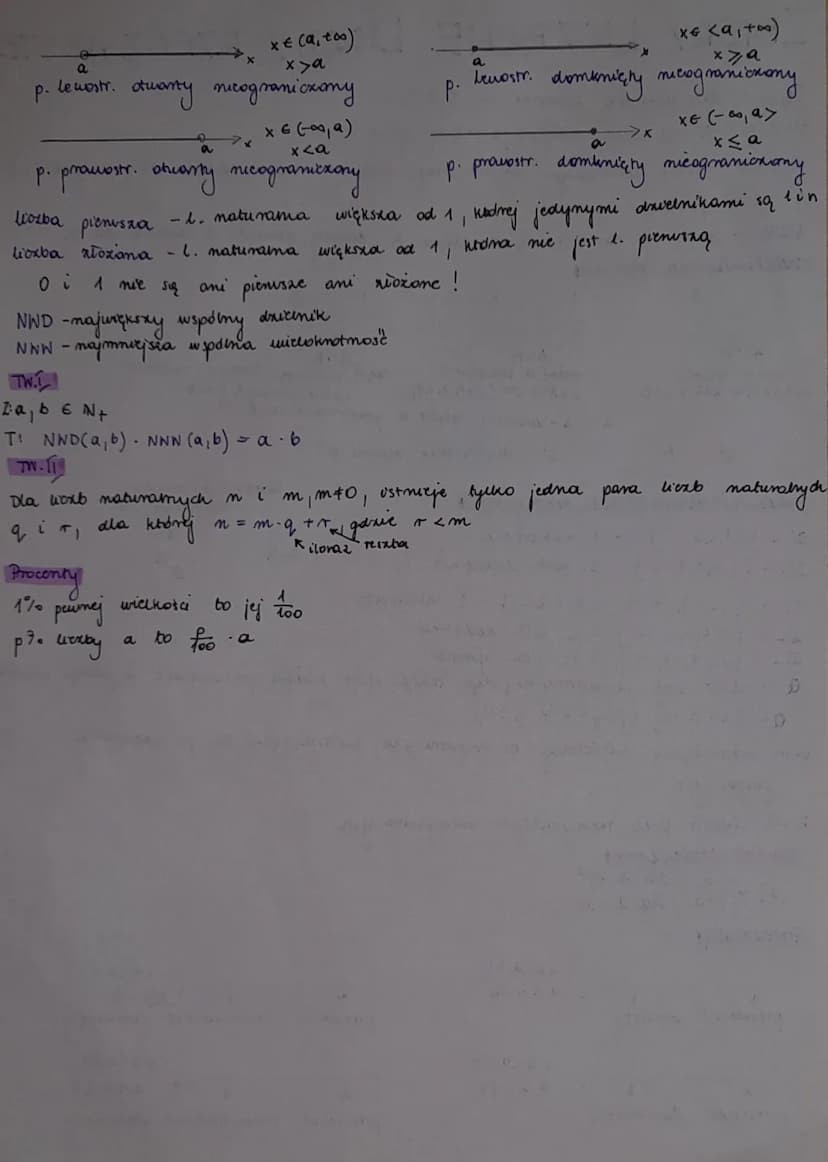 x ∈ (a, +∞)
a x x > a
p. lewostr. otwarty nieograniczony
x ∈ <a, +∞)
a x x ⩾ a
p. lewostr. domknięty nieograniczony
x ∈ (-∞, a)
a x x < a
p. prawostr. otwarty nieograniczony
x ∈ (-∞, a>
a x x ≤ a
p. prawostr. domknięty nieograniczony
liczba pierwsza - l. naturalna większa od 1, której jedynymi dzielnikami są 1 i n
liczba złożona - l. naturalna większa od 1, która nie jest l. pierwszą
0 i 1 nie są ani pierwsze ani złożone!
NWD - największy wspólny dzielnik
NNW - najmniejsza wspólna wielokrotność
TW.I
Z: a, b ∈ N+
T: NWD(a,b) · NNW(a,b) = a · b
TW.II
Dla liczb naturalnych n i m, m≠0, istnieje tylko jedna para liczb naturalnych
q i r, dla której n = m·q + r, gdzie r < m
iloraz reszta
Procenty
1% pewnej wielkości to jej 1/100
p% liczby a to p/100 · a